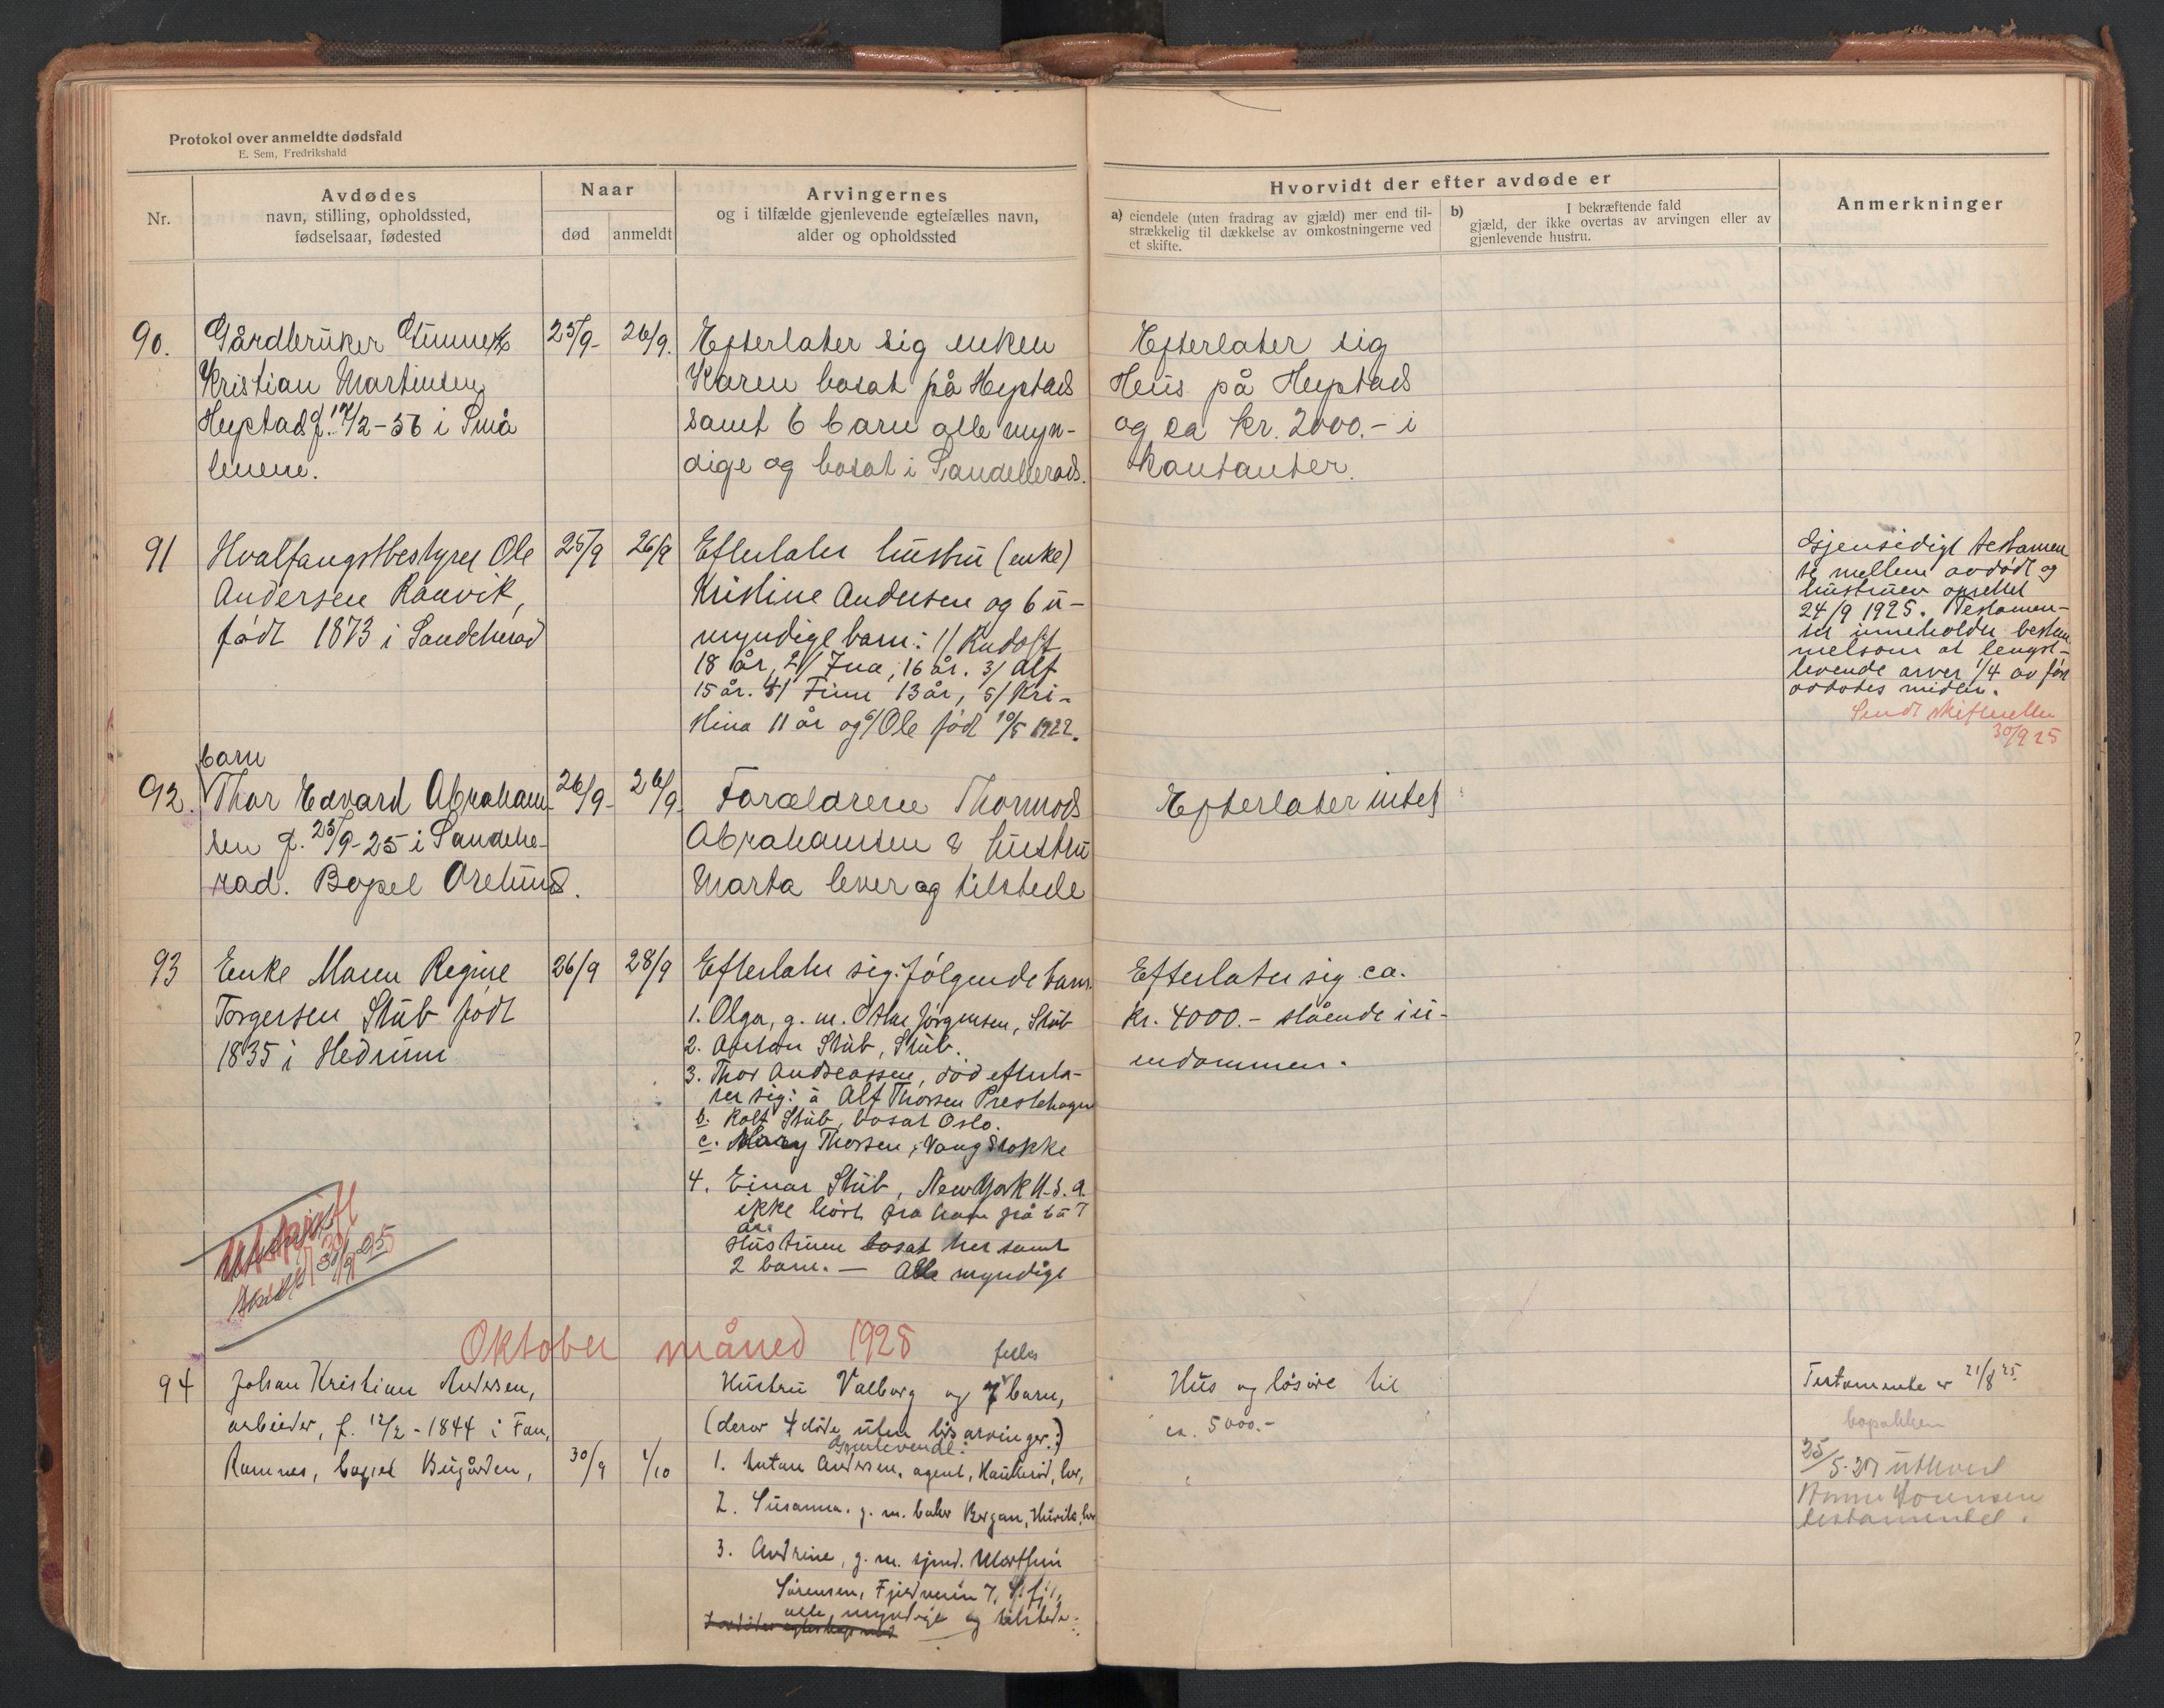 Protokol over anmeldte dødsfald
E. Sem, Fredrikshald
Nr.
Avdødes
navn, stilling, opholdssted,
fødselsaar, fødested
Naar
død
anmeldt
Arvingernes
og i tilfælde gjenlevende egtefælles navn,
alder og opholdssted
Hvorvidt der efter avdøde er
a) eiendele (uten fradrag av gjæld) mer end til-
strækkelig til dækkelse av omkostningerne ved
et skifte.
b) I bekræftende fald
gjæld, der ikke overtas av arvingen eller av
gjenlevende hustru.
Anmerkninger
90.
Gårdbruker
Kristian Martinsen
Hystad f. 17/2-56 i Små
lenene.
25/9-
26/9.
Efterlater sig enken
Karen bosat på Hystad
samt 6 barn alle myn-
dige og bosat i Sandeherad.
Efterlater sig
Hus på Hystad
og ca kr. 2000.- i
kontanter.
91
Hvalfangstbestyrer Ole
Andersen Ranvik,
født 1873 i Sandeherad
25/9
26/9
Efterlater hustru (enke)
Kristine Andersen og 6 u-
myndige barn: 1/ Rudolf
18 år, 2/ Ina, 16 år. 3/ Alf
15 år. 4/ Finn 13 år, 5/ Kri-
stina 11 år og 6/ Ole fød 10/5 1922.
Gjensidigt testamen
te mellem avdøde og
hustruen oprettet
24/9 1925. Testamen-
tet inneholder bestem
melsom at lengst-
levende arver 1/4 av før
avdødes midler.
Sendt skifteretten
30/9 25
barn
92.
Thor Edvard Abraham-
sen f. 25/9-25 i Sandehe-
rad. Bopel Orelund.
26/9-
26/9-
Forældrene Thormod
Abrahamsen & hustru
Marta lever og tilstede
Efterlater intet
93
Enke Maren Regine
Torgersen Stub født
1835 i Hedrum
26/9
28/9
Efterlater sig følgende barn
1. Olga, g. m. Othar Jørgensen, Stub
2. Anton Stub, Stub.
3. Thor Andreassen, død efterla-
ter sig: a Alf Thorsen Prestehagen
b. Rolf Stub, bosat Oslo.
c. Mary Thorsen, Vang Stokke
4. Einar Stub, New York U.S.A.
ikke hørt fra ham på 6 a 7
år.
Hustruen bosat her samt
2 barn. — Alle myndige
Efterlater sig ca.
kr. 4000.- stående i ei-
endommen.
30/9 25
Oktober måned 1925
94
Johan Kristian Andersen,
arbeider, f. 12/2-1844 i Fon,
Ramnes, bopæl Bugården,
30/9
1/10
felles
Hustru Valborg og 7 barn,
(derav 4 døde uten livsarvinger.)
Gjenlevende:
1. Anton Andersen, agent, Haukerød, her,
2. Susanna. g. m. baker Bergan, her
3. Andrine, g. m. sjmd. Marthin
Sørensen, Fjeldveien 7, S.fj.,
alle myndige og tilstede.
Hus og løsøre til
ca. 5000.-
Testamente er 21/8 25.
25/5-27 uthvert
testamentet.